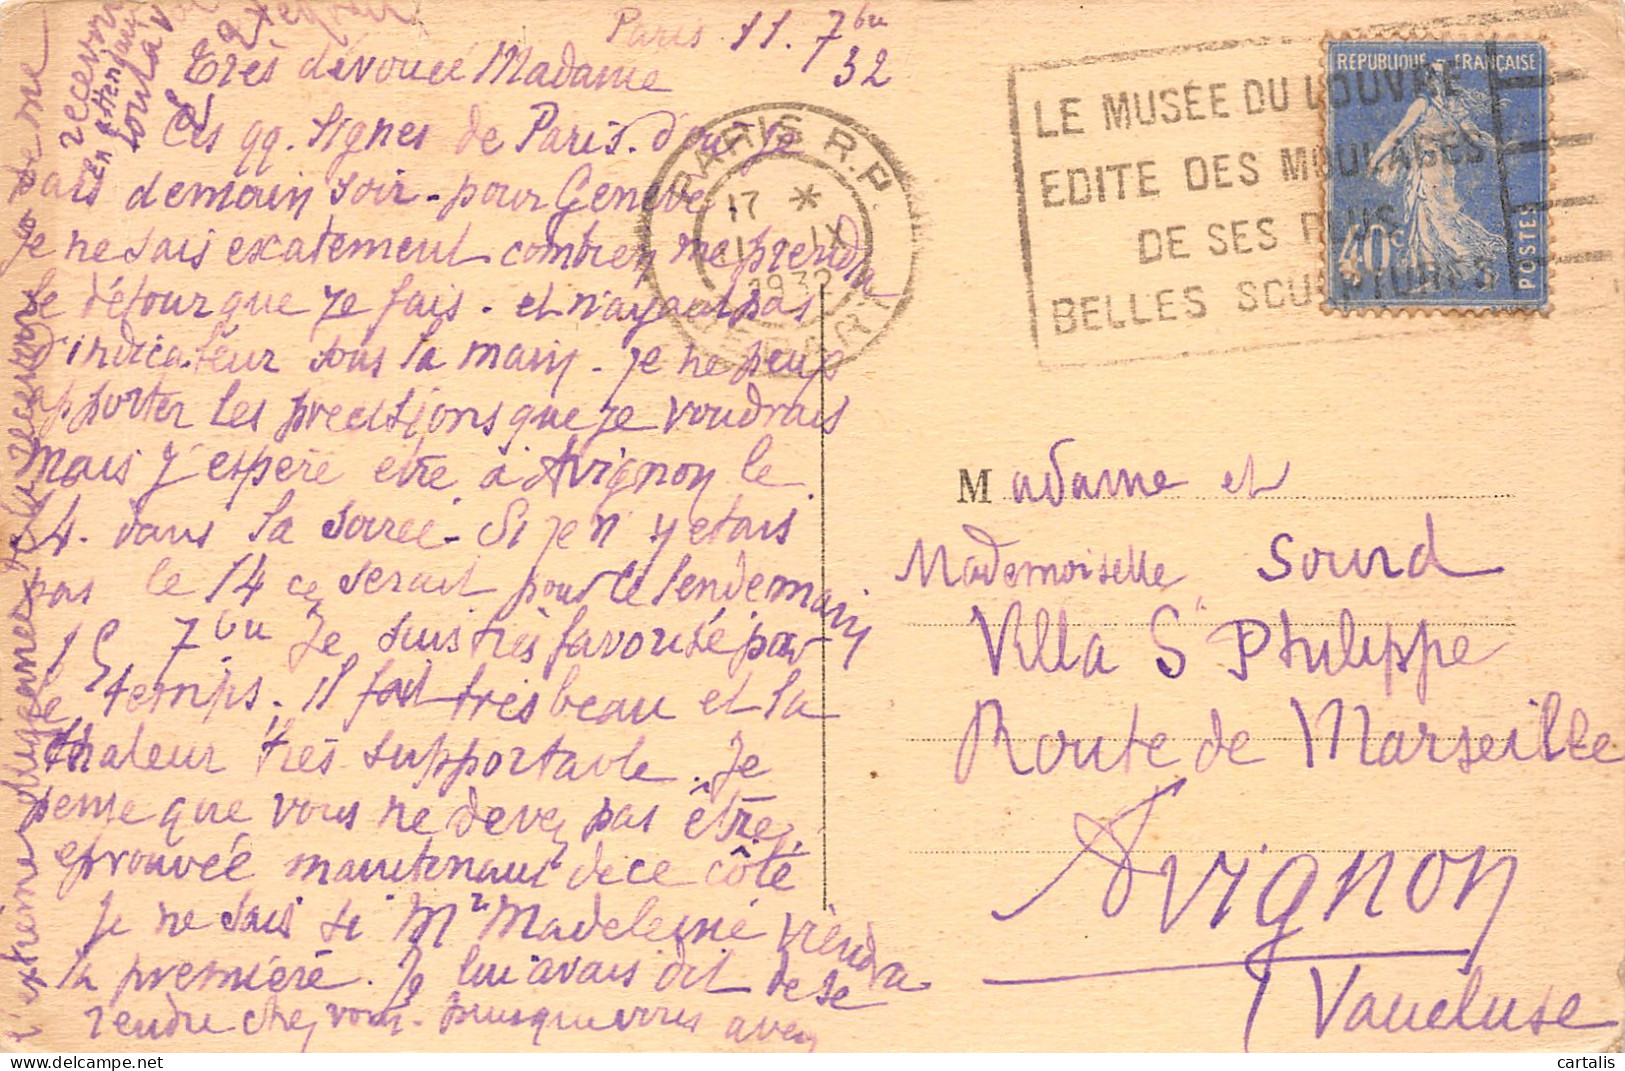 Paris 11. 7bre
32
Très dévouée Madame
Ces qq. lignes de Paris. d'où je
vais demain soir - pour Genève.
Je ne sais exatement combien me prendra
le détour que je fais - et n'ayant pas
d'indicateur sous la main - je ne peux
apporter les précisions que je voudrais
mais j'espère être à Avignon le
14. dans la soirée - Si je n'y étais
pas le 14 ce serait pour le lendemain
15 7bre Je suis très favorisé par
le temps. Il fait très beau et la
chaleur très supportable. Je
pense que vous ne devez pas être
éprouvée maintenant de ce côté
Je ne sais si Madeleine viendra
la première. Je lui avais dit de se
rendre chez vous - puisque vous avez
l'extrême obligeance de la recevoir
de me
recevoir
En attendant
PARIS R.P.
17 *
11 IX
1932
DEPART
LE MUSÉE DU LOUVRE
EDITE DES MOULAGES
DE SES PLUS
BELLES SCULPTURES
REPUBLIQUE FRANÇAISE
40c
POSTES
Madame et
Mademoiselle Sourd
Villa St Philippe
Route de Marseille
Avignon
Vaucluse
cartalis